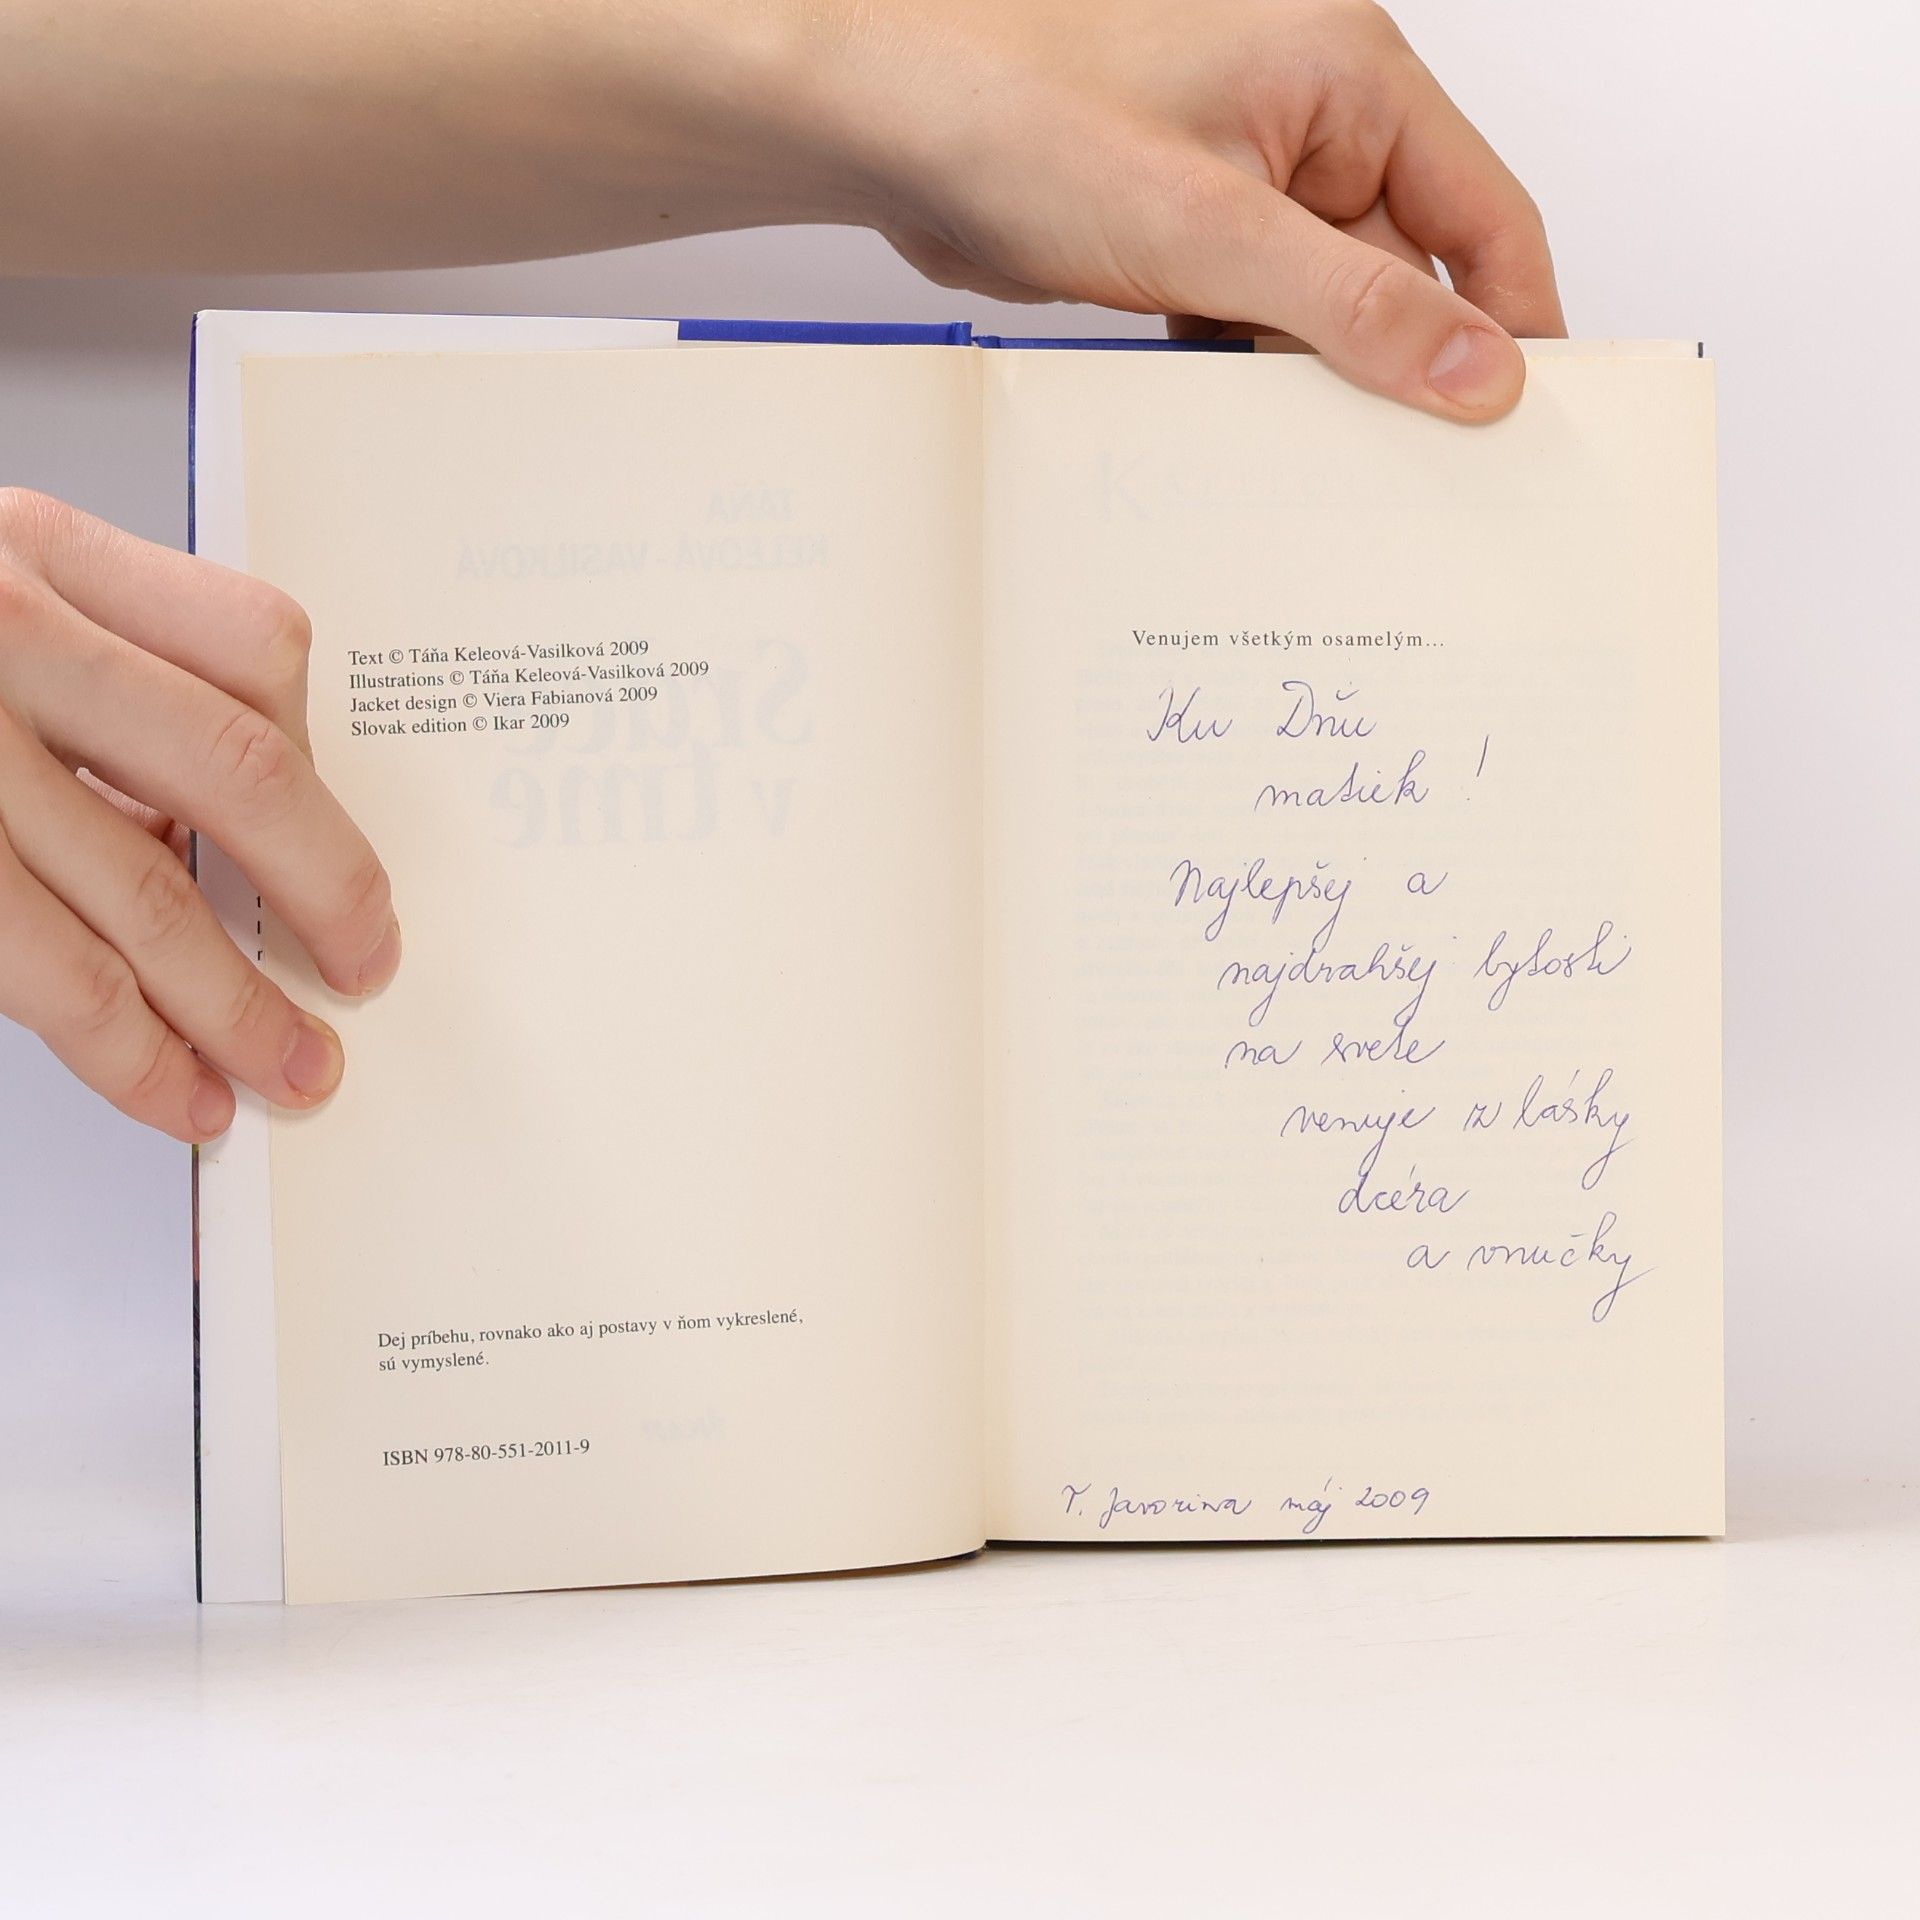 Text © Táňa Keleová-Vasilková 2009
Illustrations © Táňa Keleová-Vasilková 2009
Jacket design © Viera Fabianová 2009
Slovak edition © Ikar 2009
Dej príbehu, rovnako ako aj postavy v ňom vykreslené,
sú vymyslené.
ISBN 978-80-551-2011-9
Venujem všetkým osamelým...
Ku Dňu
matiek !
Najlepšej a
najdrahšej bytosti
na svete
venuje z lásky
dcéra
a vnučky
T. Javorina máj 2009